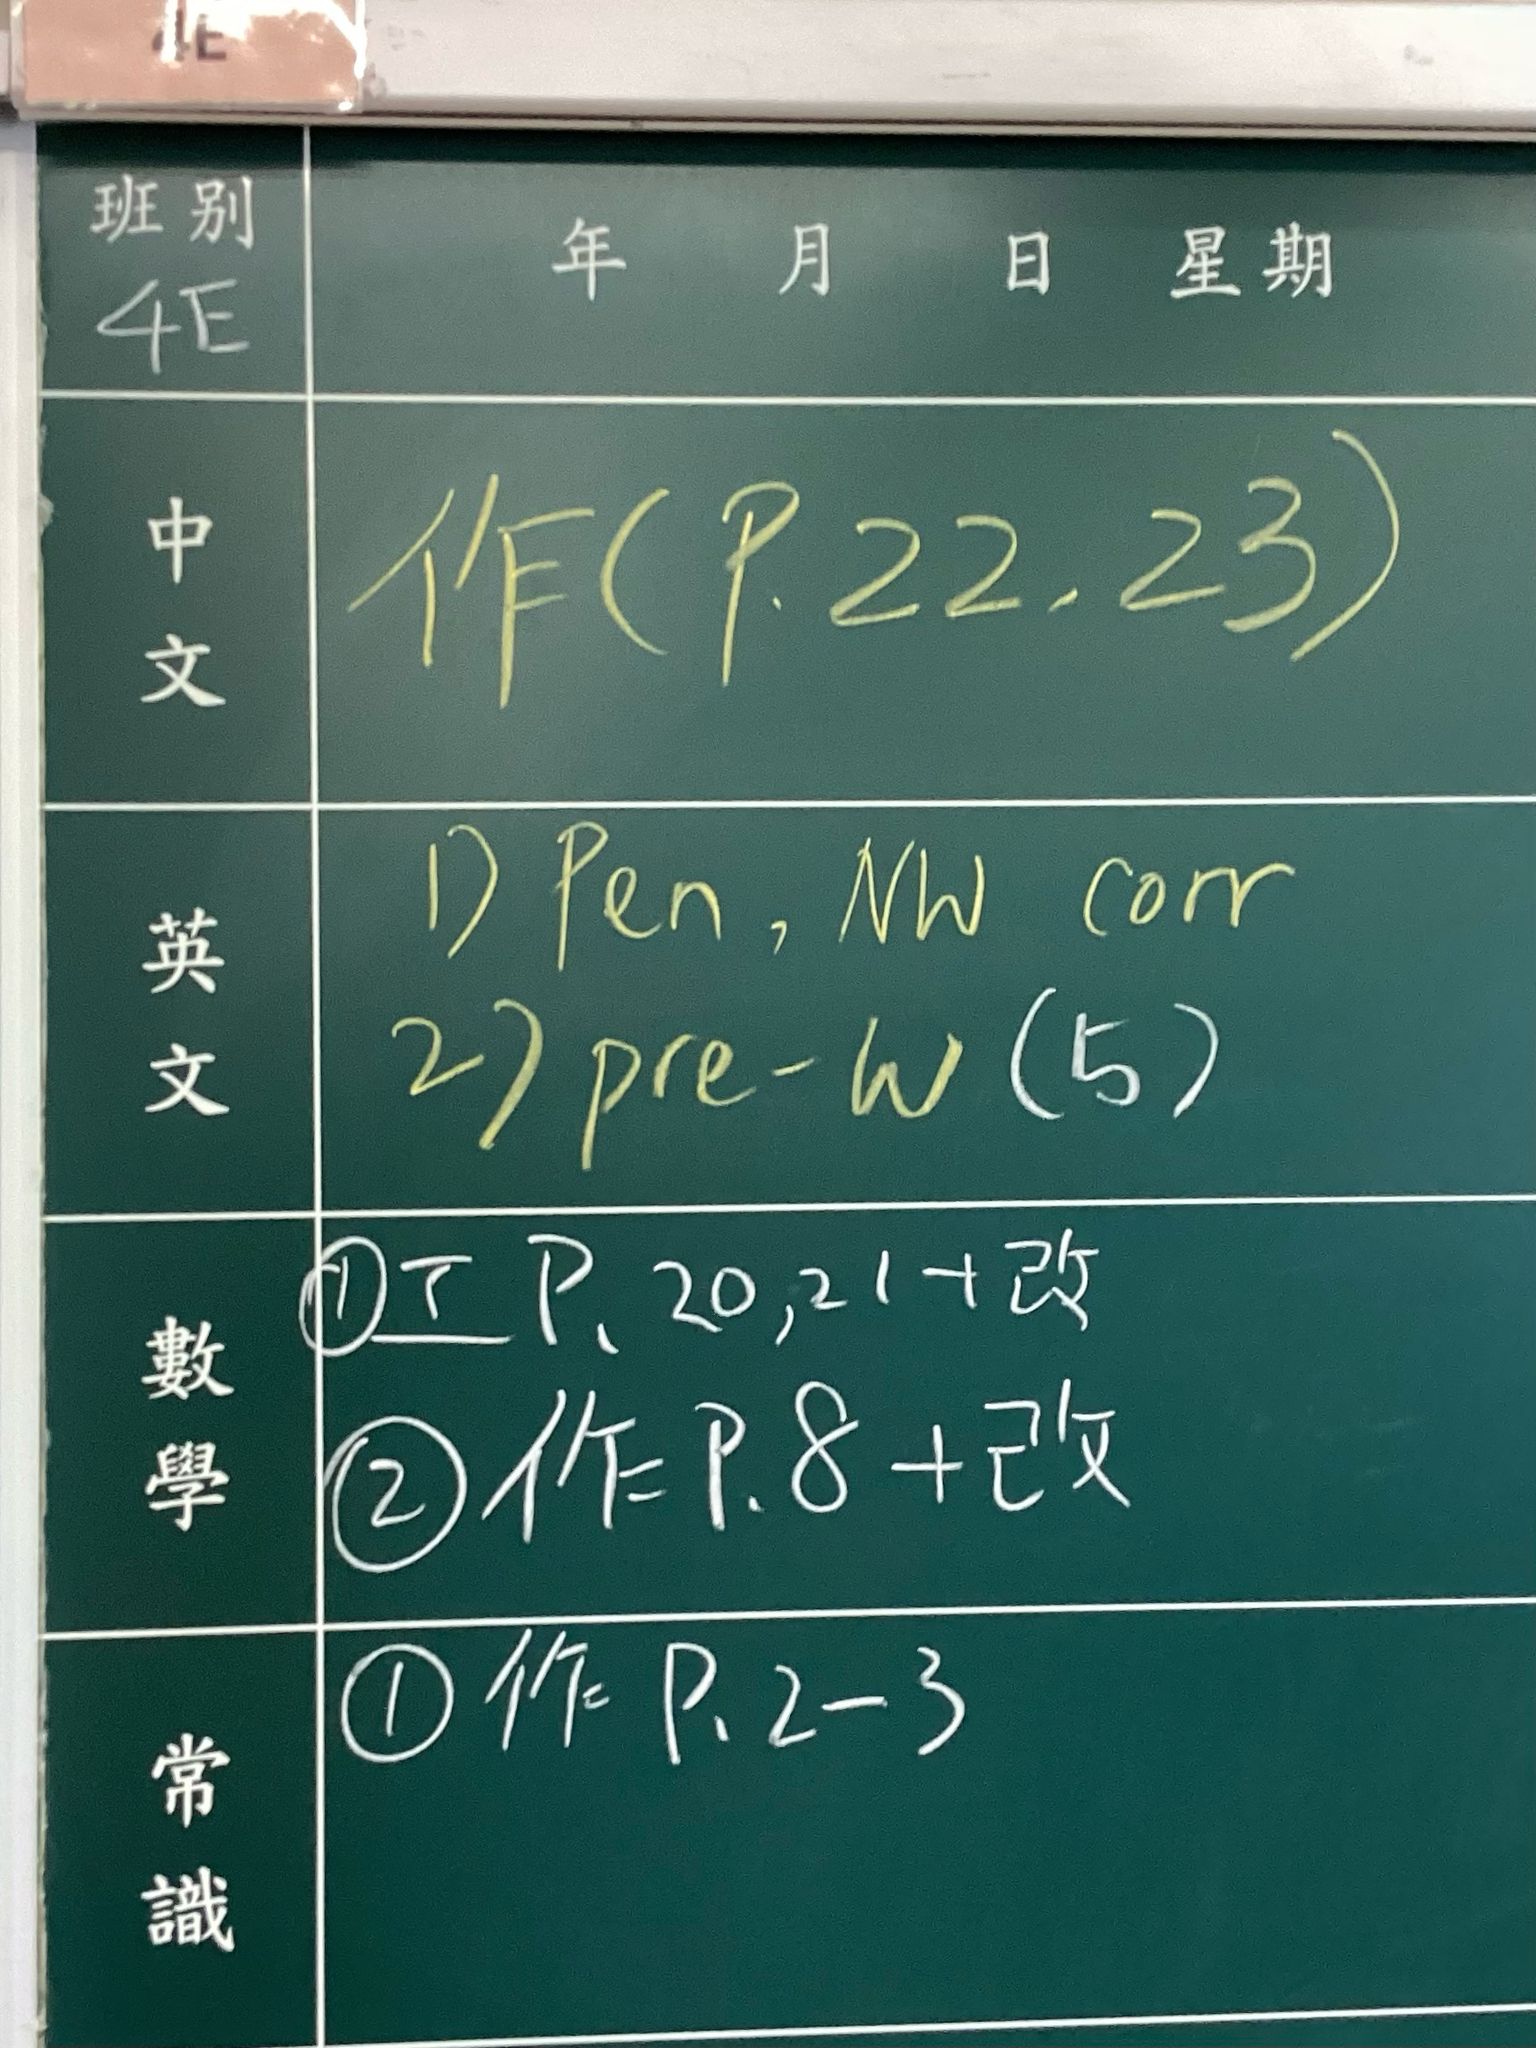 4E
班別
4E
年 月 日 星期
中文
作(P.22,23)
英文
1) Pen, NW corr
2) pre-W (5)
數學
①工 P.20,21+改
②作 P.8+改
常識
①作 P.2-3